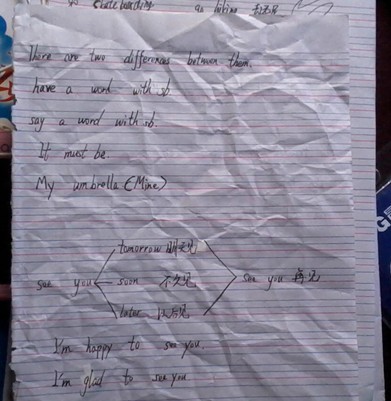 There are two differences between them.
have a word with sb
say a word with sb.
It must be.
My umbrella (Mine)
tomorrow 明天见
see you soon 不久见 see you 再见
later 以后见
I'm happy to see you.
I'm glad to see you